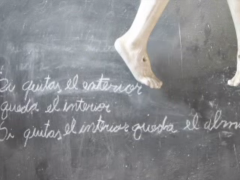 Si quitas el exterior
queda el interior
Si quitas el interior queda el alma